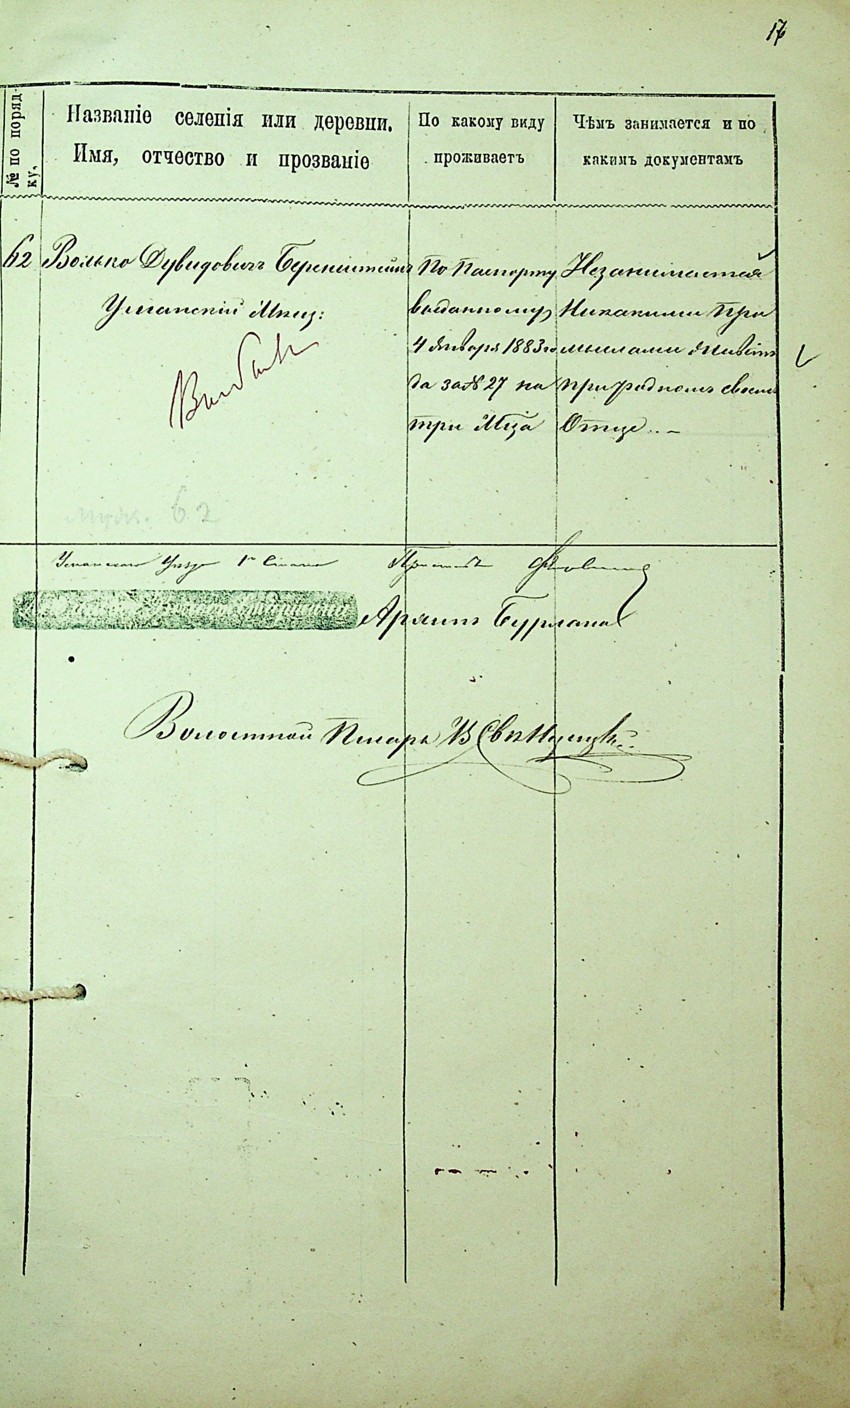 17
№ по поряд-
ку.
Названіе селенія или деревни.
Имя, отчество и прозваніе
По какому виду
проживаетъ
Чѣмъ занимается и по
какимъ документамъ
62
Волько Дувидовичъ Беренштейнъ
Уманскій Мѣщ:
По паспорту
выданному
4 Января 1883 го
да за № 27 на
три Мѣца
Незанимается
Никакими про
мыслами живетъ
при родномъ своемъ
Отце..–
Выбылъ
62
Уманскаго Уезда 1го Стана Приставъ
Бурлака
Волостной Писарь